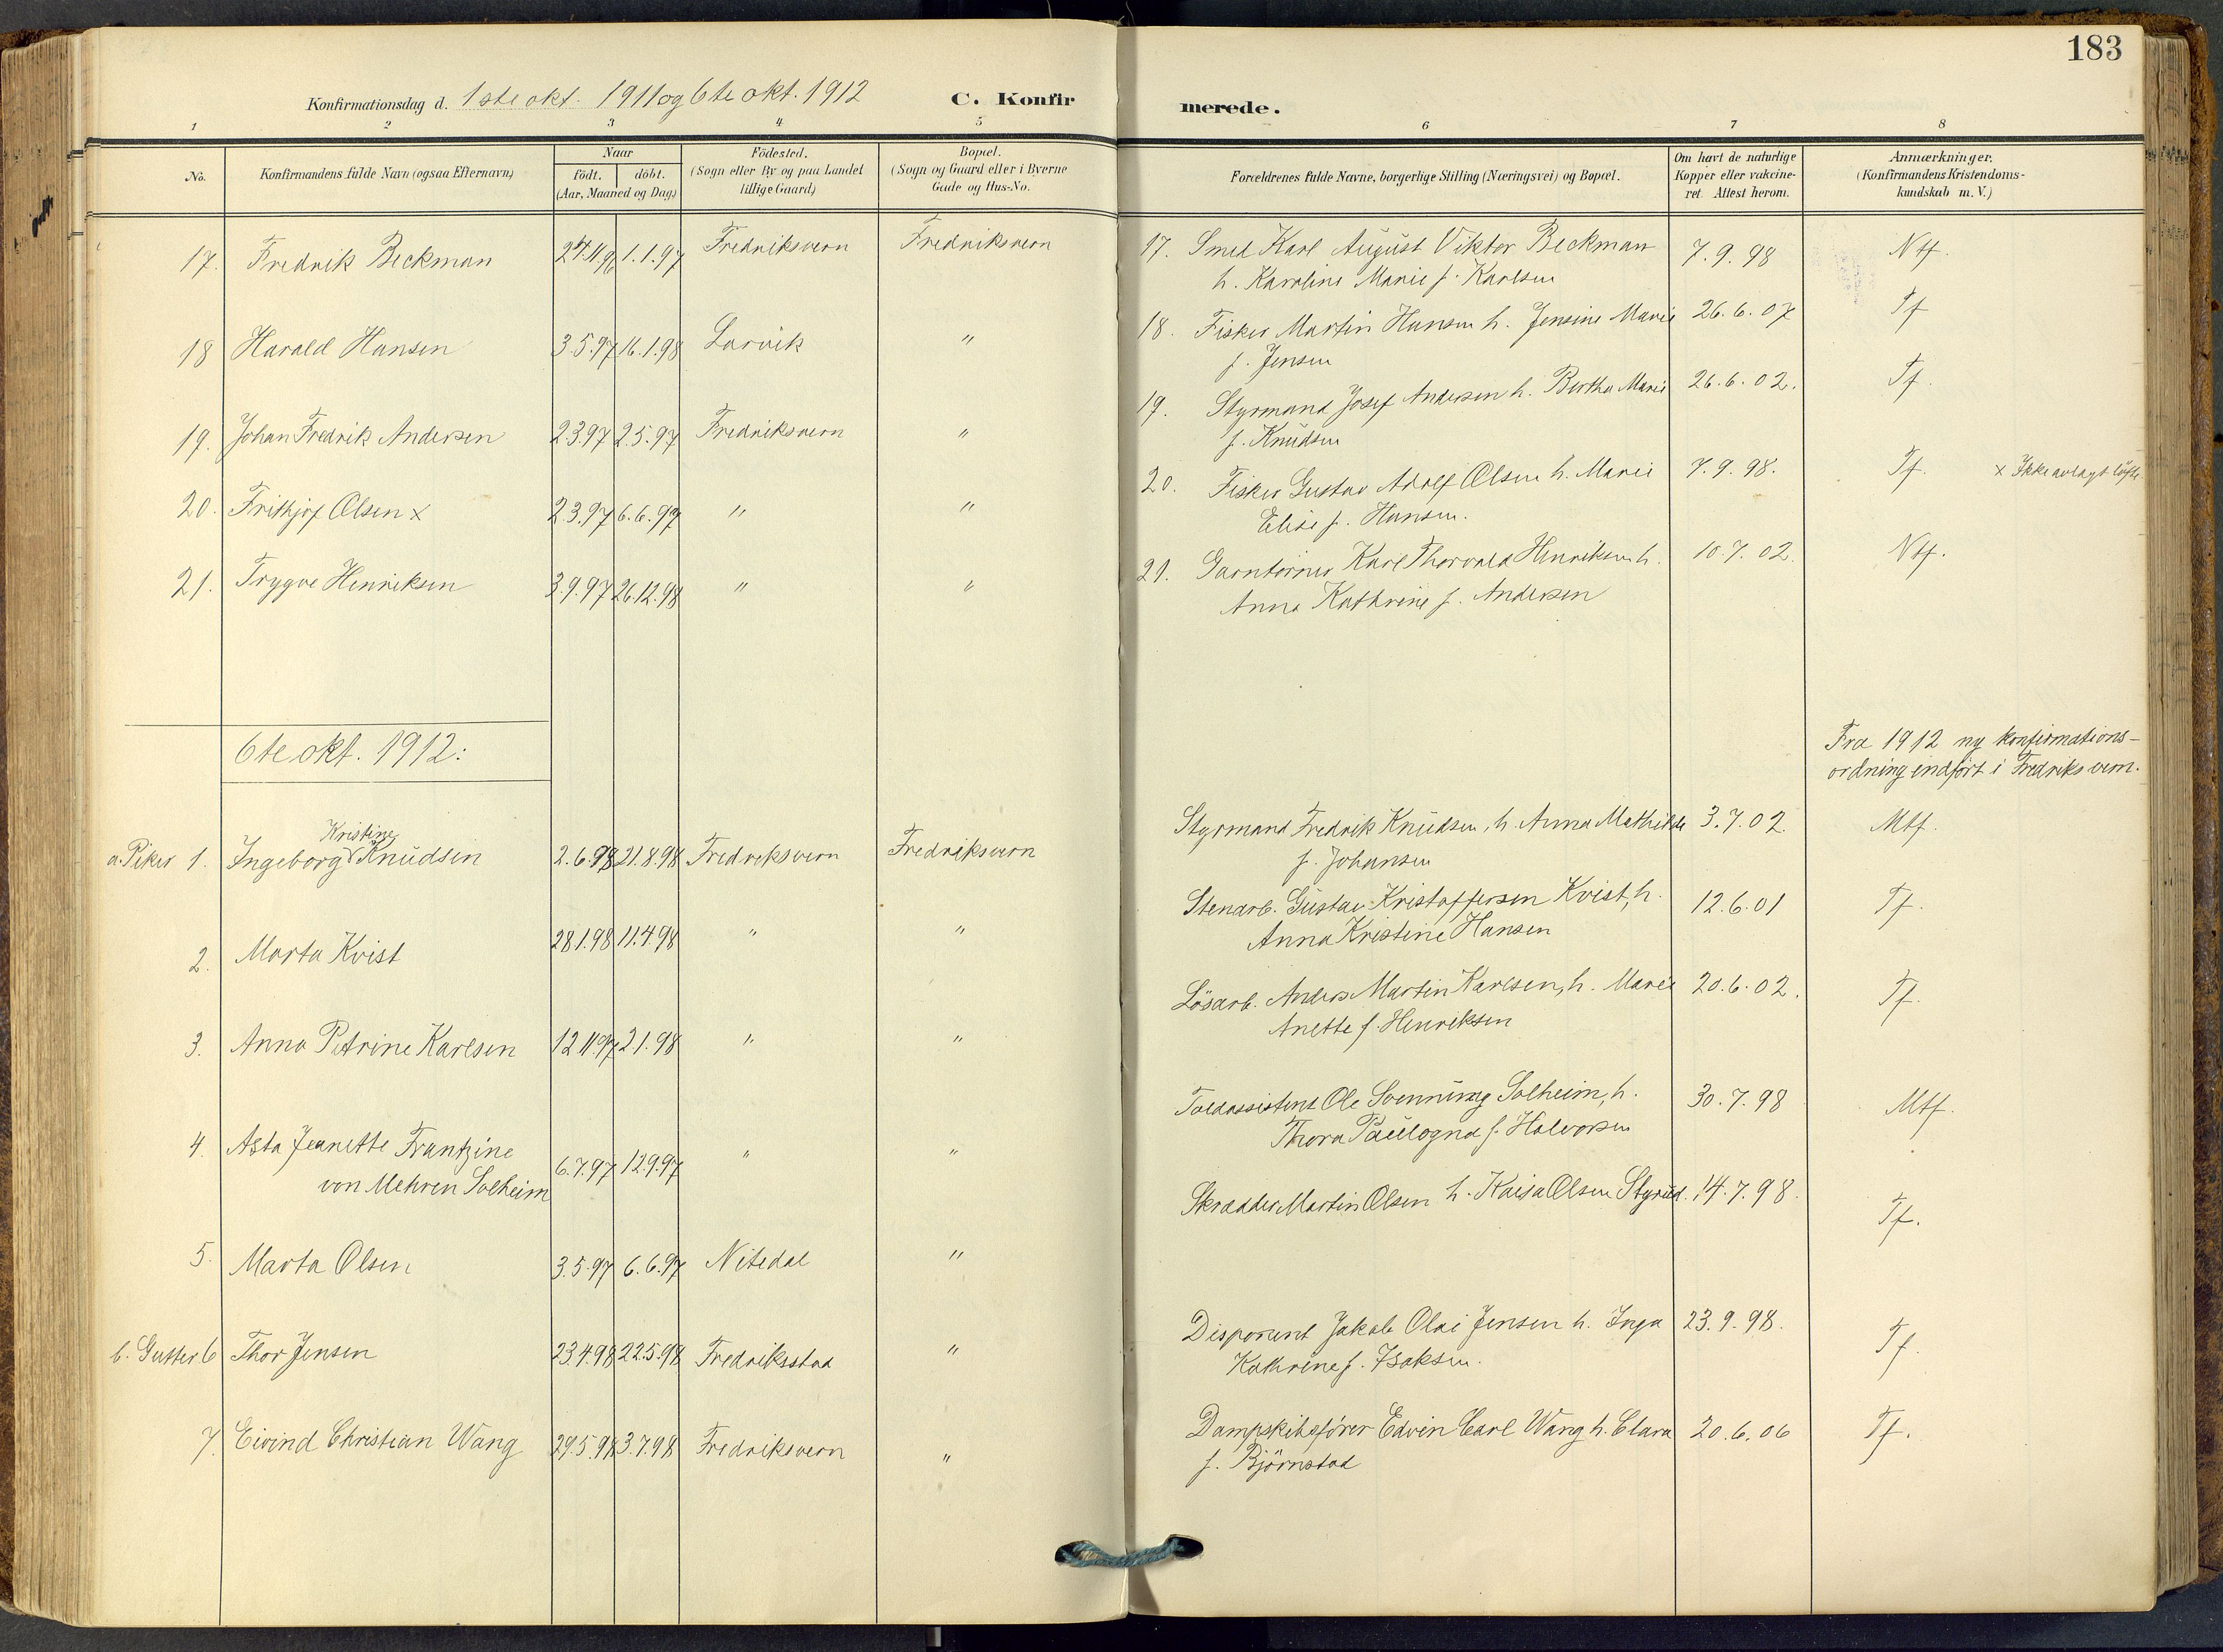 183
Konfirmationsdag d. 1ste okt. 1911 og 6te okt. 1912
C. Konfirmerede.
1 2 3 4 5 6 7 8
No.
Konfirmandens fulde Navn (ogsaa Efternavn)
Naar
födt. döbt.
(Aar, Maaned og Dag)
Födested.
(Sogn eller By og paa Landet
tillige Gaard)
Bopæl.
(Sogn og Gaard eller i Byerne
Gade og Hus-No.
Forældrenes fulde Navne, borgerlige Stilling (Næringsvei) og Bopæl.
Om havt de naturlige
Kopper eller vakcine-
ret. Attest herom.
Anmærkninger.
(Konfirmandens Kristendoms-
kundskab m. V.)
17. Fredrik Beckman 24.11.96 1.1.97 Fredriksvern Fredriksvern 17. Smed Karl August Viktor Beckman 7.9.98 Ntf.
h. Karoline Marie f. Karlsen
18 Harald Hansen 3.5.97 16.1.98 Larvik " 18. Fisker Martin Hansen h. Jensine Marie 26.6.07 Tf
f. Jensen
19. Johan Fredrik Andersen 2.3.97 2.5.97 Fredriksvern " 19. Styrmand Josef Andersen h. Bertha Marie 26.6.02. Tf.
f. Knudsen
20. Frithjof Olsen x 2.3.97 6.6.97 " " 20. Fisker Gustav Adolf Olsen h. Marie 7.9.98. Tf. x Ikke avlagt løfte.
Elise f. Hansen.
21. Trygve Henriksen 3.9.97 26.12.98 " " 21. Garntörner Karl Thorvald Henriksen h. 10.7.02. Ntf.
Anna Kathrine f. Andersen
6te okt. 1912:
Fra 1912 ny konfirmations-
ordning indført i Fredriksvern.
Kristine
a. Piker 1. Ingeborg Knudsen 2.6.98 21.8.98 Fredriksvern Fredriksvern Styrmand Fredrik Knudsen, h. Anna Mathilde 3.7.02. Mtf.
f. Johansen
2. Marta Kvist 28.1.98 11.4.98 " " Stenarb. Gustav Kristoffersen Kvist, h. 12.6.01 Tf.
Anna Kristine Hansen
3. Anna Petrine Karlsen 12.11.97 2.1.98 " " Lösarb. Anders Martin Karlsen, h. Marie 20.6.02. Tf.
Anette f. Henriksen
4. Asta Jeanette Frantzine
von Mehren Solheim 6.7.97 12.9.97 " " Toldassistent Ole Svennung Solheim, h. 30.7.98 Mtf.
Thora Paulogna f. Halvorsen
5. Marta Olsen 3.5.97 6.6.97 Nitedal " Skrædder Martin Olsen h. Kaisa Olsen Styrud. 14.7.98. Tf.
b. Gutter 6 Thor Jensen 23.4.98 22.5.98 Fredriksstad " Disponent Jakob Olai Jensen h. Inga 23.9.98. Tf.
Kathrine f. Isaksen.
7. Eivind Christian Wang 29.5.98 3.7.98 Fredriksvern " Dampskibsfører Edvin Carl Wang h. Clara 20.6.06 Tf.
f. Björnstad